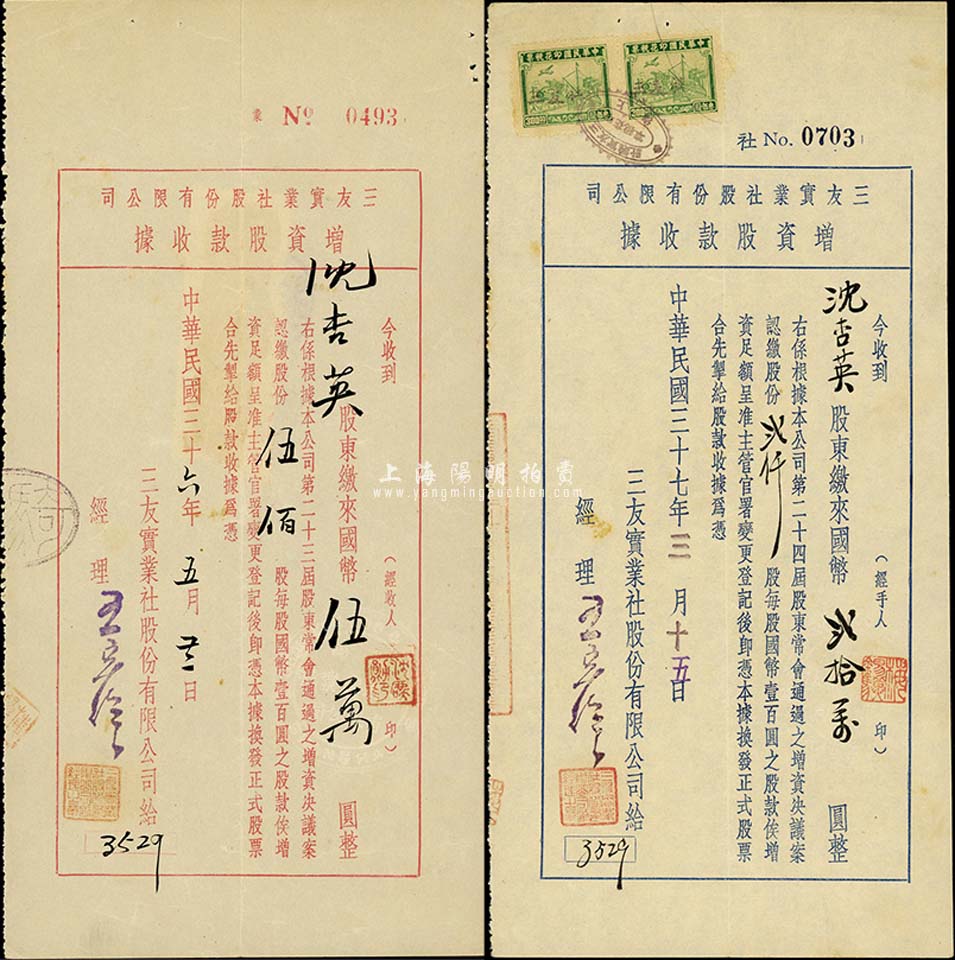 業 No 0493
三友實業社股份有限公司
增資股款收據
今收到
沈杏英股東繳來國幣伍萬圓整
（經收人 印）
右係根據本公司第二十三屆股東常會通過之增資決議案
認繳股份伍佰股每股國幣壹百圓之股款俟增
資足額呈准主管官署變更登記後卽憑本據換發正式股票
合先掣給股款收據爲憑
中華民國三十六年五月廿二日
三友實業社股份有限公司給
經理
3529
中華民國印花稅票
中華民國印花稅票
300
300
社 No. 0703
三友實業社股份有限公司
增資股款收據
今收到
沈杏英股東繳來國幣貳拾萬圓整
（經手人 印）
右係根據本公司第二十四屆股東常會通過之增資決議案
認繳股份貳仟股每股國幣壹百圓之股款俟增
資足額呈准主管官署變更登記後卽憑本據換發正式股票
合先掣給股款收據爲憑
中華民國三十七年三月十五日
三友實業社股份有限公司給
經理
3529
上海陽明拍賣
www.yangmingauction.com